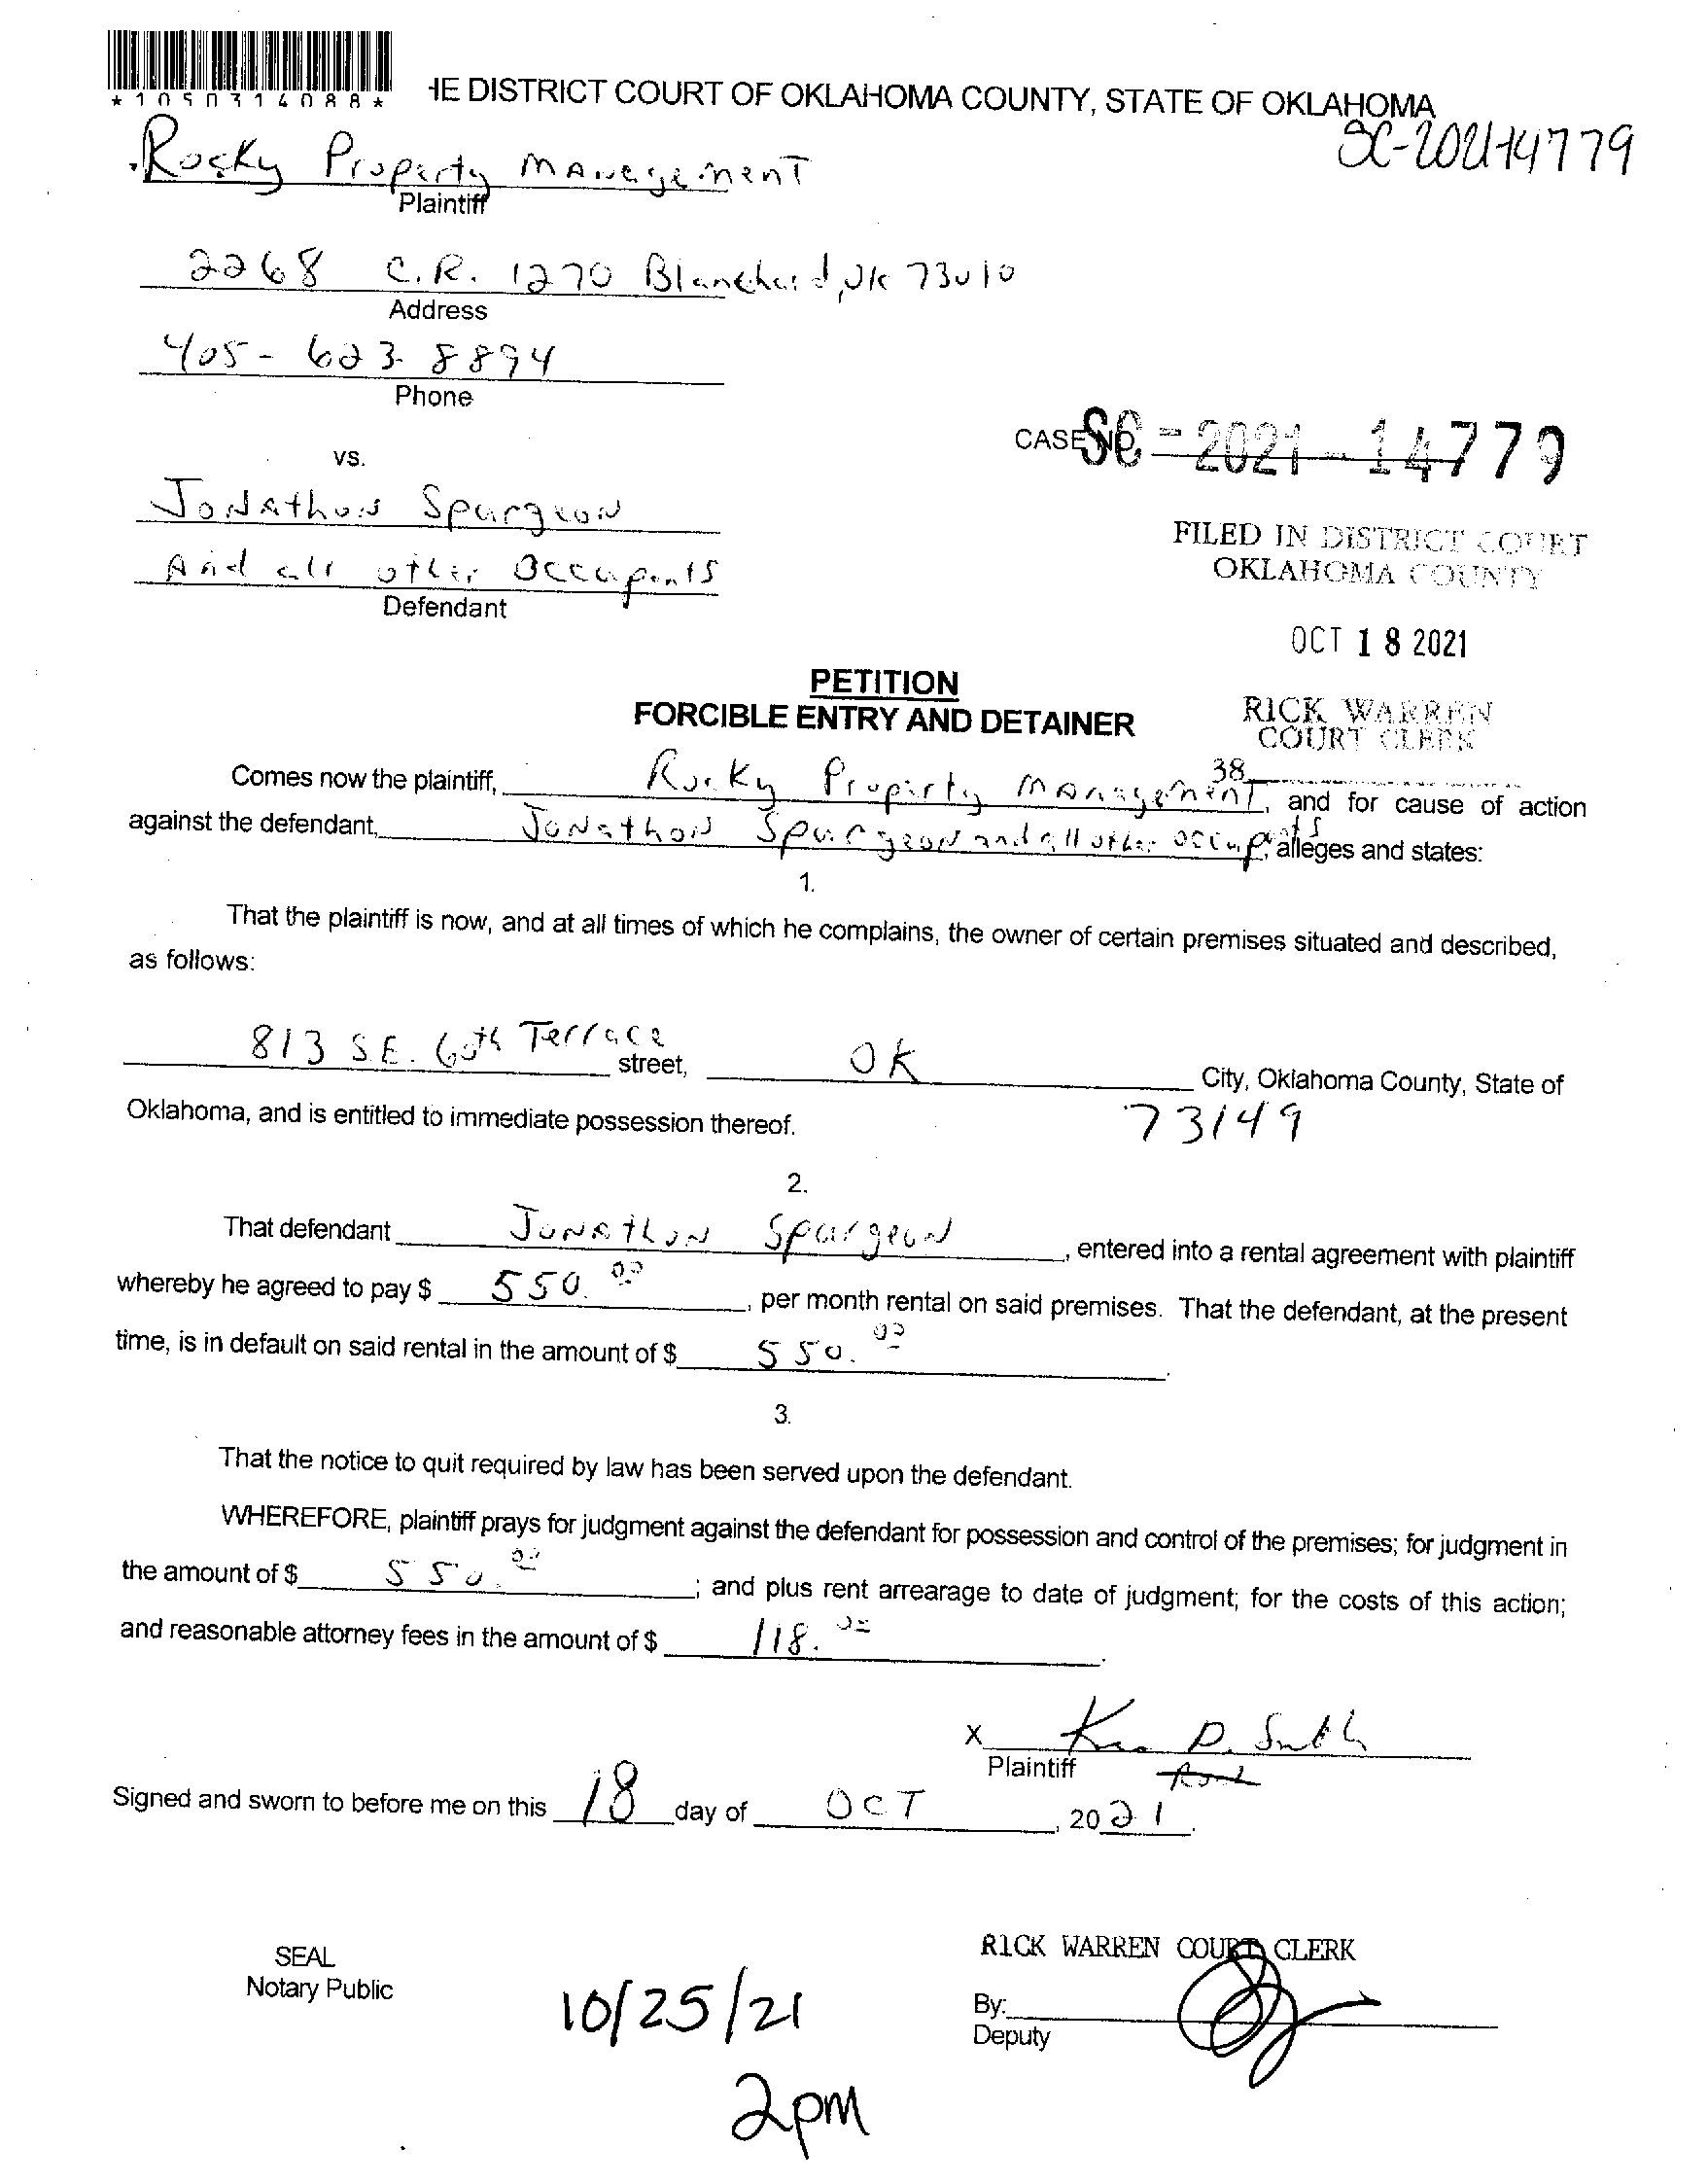 *1050314088*
HE DISTRICT COURT OF OKLAHOMA COUNTY, STATE OF OKLAHOMA
SC-2021-14779
Rocky Property Management
Plaintiff
2268 C.R. 1270 Blanchard, Ok 73010
Address
405-623-8894
Phone
CASE NO. SC-2021-14779
vs.
Jonathon Spurgeon
And all other Occupants
Defendant
FILED IN DISTRICT COURT
OKLAHOMA COUNTY
OCT 18 2021
RICK WARREN
COURT CLERK
38
PETITION
FORCIBLE ENTRY AND DETAINER
Comes now the plaintiff, Rocky Property Management, and for cause of action
against the defendant, Jonathon Spurgeon and all other occupants alleges and states:
1.
That the plaintiff is now, and at all times of which he complains, the owner of certain premises situated and described,
as follows:
813 S.E. 60th Terrace street, OK City, Oklahoma County, State of
Oklahoma, and is entitled to immediate possession thereof. 73149
2.
That defendant Jonathon Spurgeon, entered into a rental agreement with plaintiff
whereby he agreed to pay $ 550.00, per month rental on said premises. That the defendant, at the present
time, is in default on said rental in the amount of $ 550.00.
3.
That the notice to quit required by law has been served upon the defendant.
WHEREFORE, plaintiff prays for judgment against the defendant for possession and control of the premises; for judgment in
the amount of $ 550.00; and plus rent arrearage to date of judgment; for the costs of this action;
and reasonable attorney fees in the amount of $ 118.00.
X D. Smith
Plaintiff
Signed and sworn to before me on this 18 day of OCT, 2021.
SEAL
Notary Public
RICK WARREN COURT CLERK
By:
Deputy
10/25/21
2pm